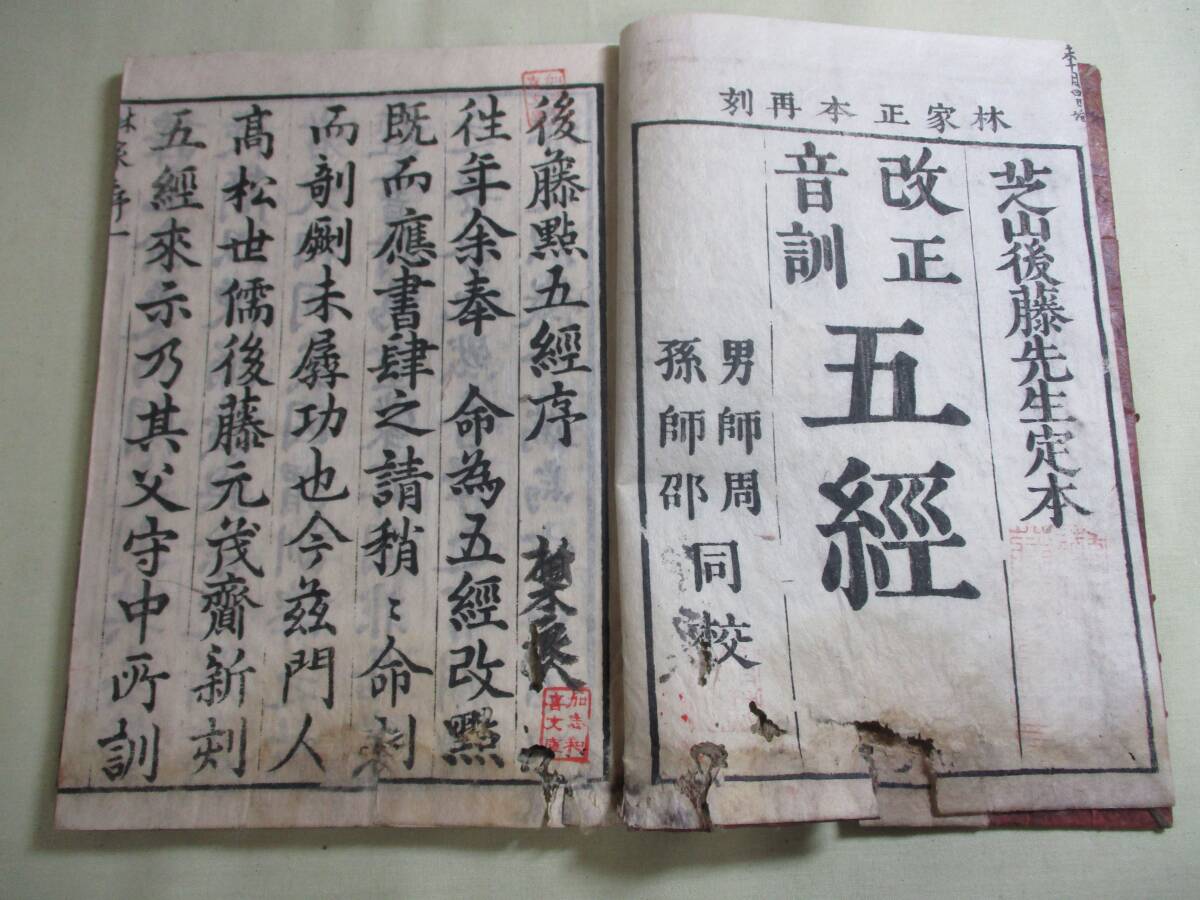 林家正本再刻
芝山後藤先生定本
改正
音訓
五經
男師周
孫師邵
同校
後藤點五經序
徃年余奉 命為五經改點
既而應書肆之請稍〻命刻
而剞劂未孱功也今茲門人
髙松世儒後藤元茂齎新刻
五經來示乃其父守中所訓
林家序一
加志和
喜文庫